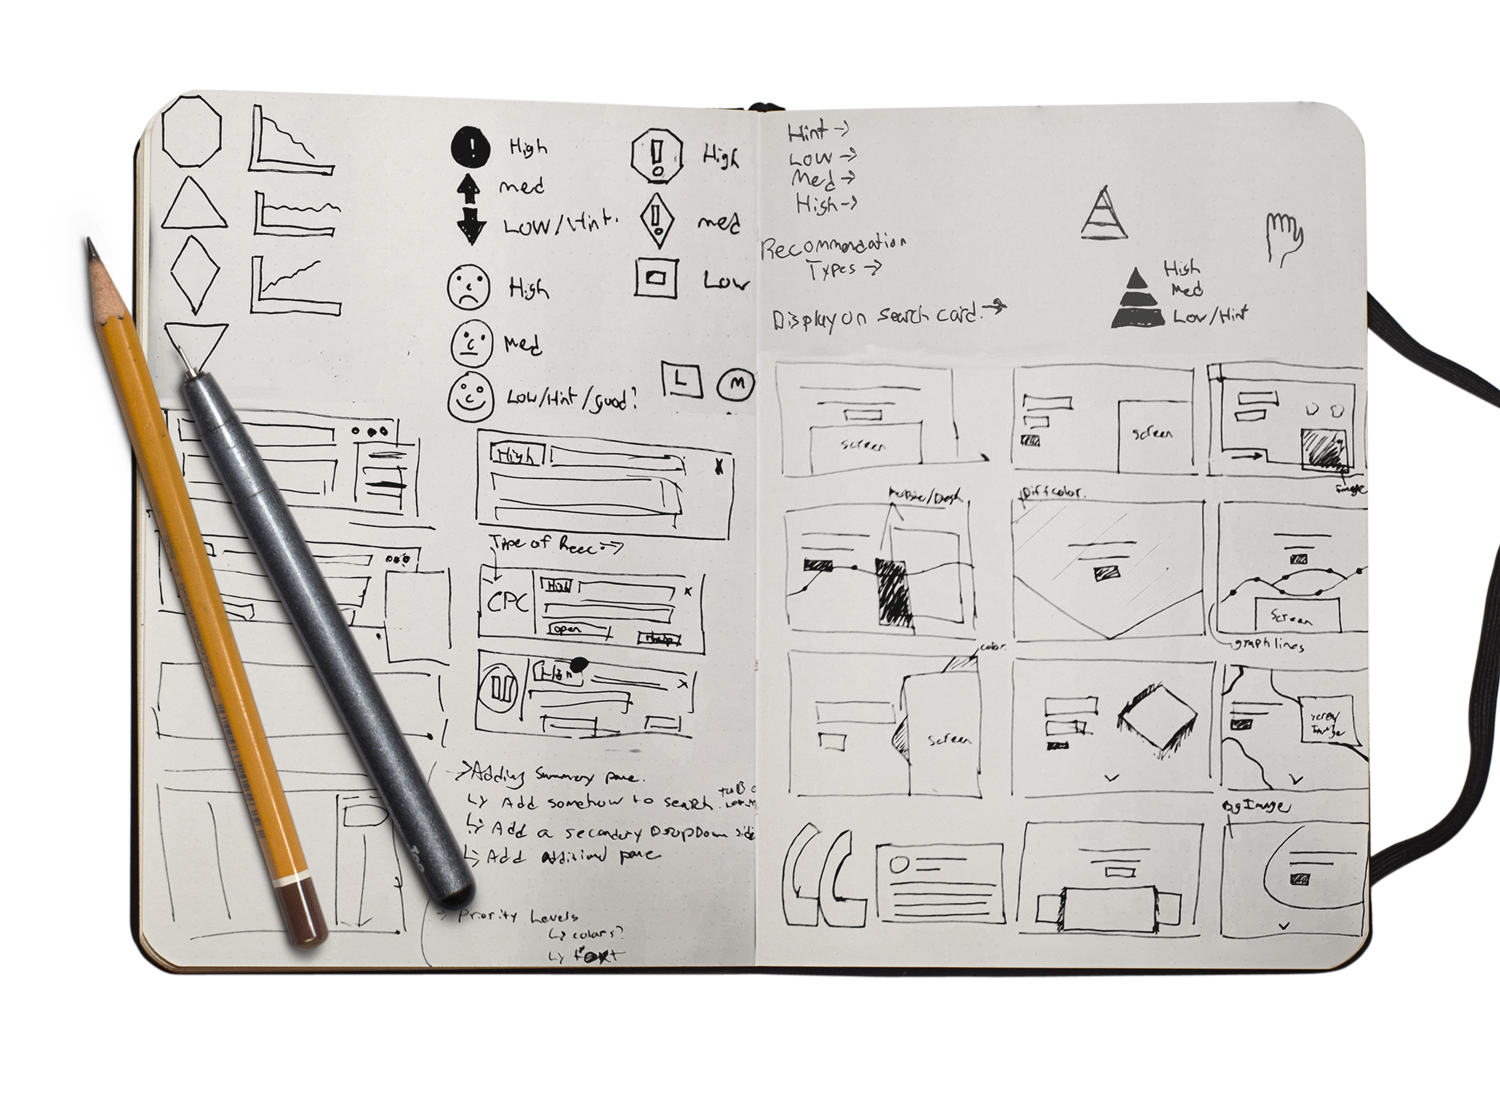 High
med
LOW/Hint.
High
Med
Low/Hint/good?
High
med
Low
L
M
High
Type of Rec:→
CPC
High
open
High
→Adding Summary pane.
↳ Add somehow to search.
↳ Add a secondary DropDown side
↳ Add additional pane
→ Priority Levels
↳ colors?
↳ text
Hint →
LOW →
Med →
High →
Recommendation
Types →
Display on search card. →
High
Med
Low/Hint
Screen
Screen
image
Diff color.
Screen
graph lines
color
Screen
Screen/
Image
Bg Image